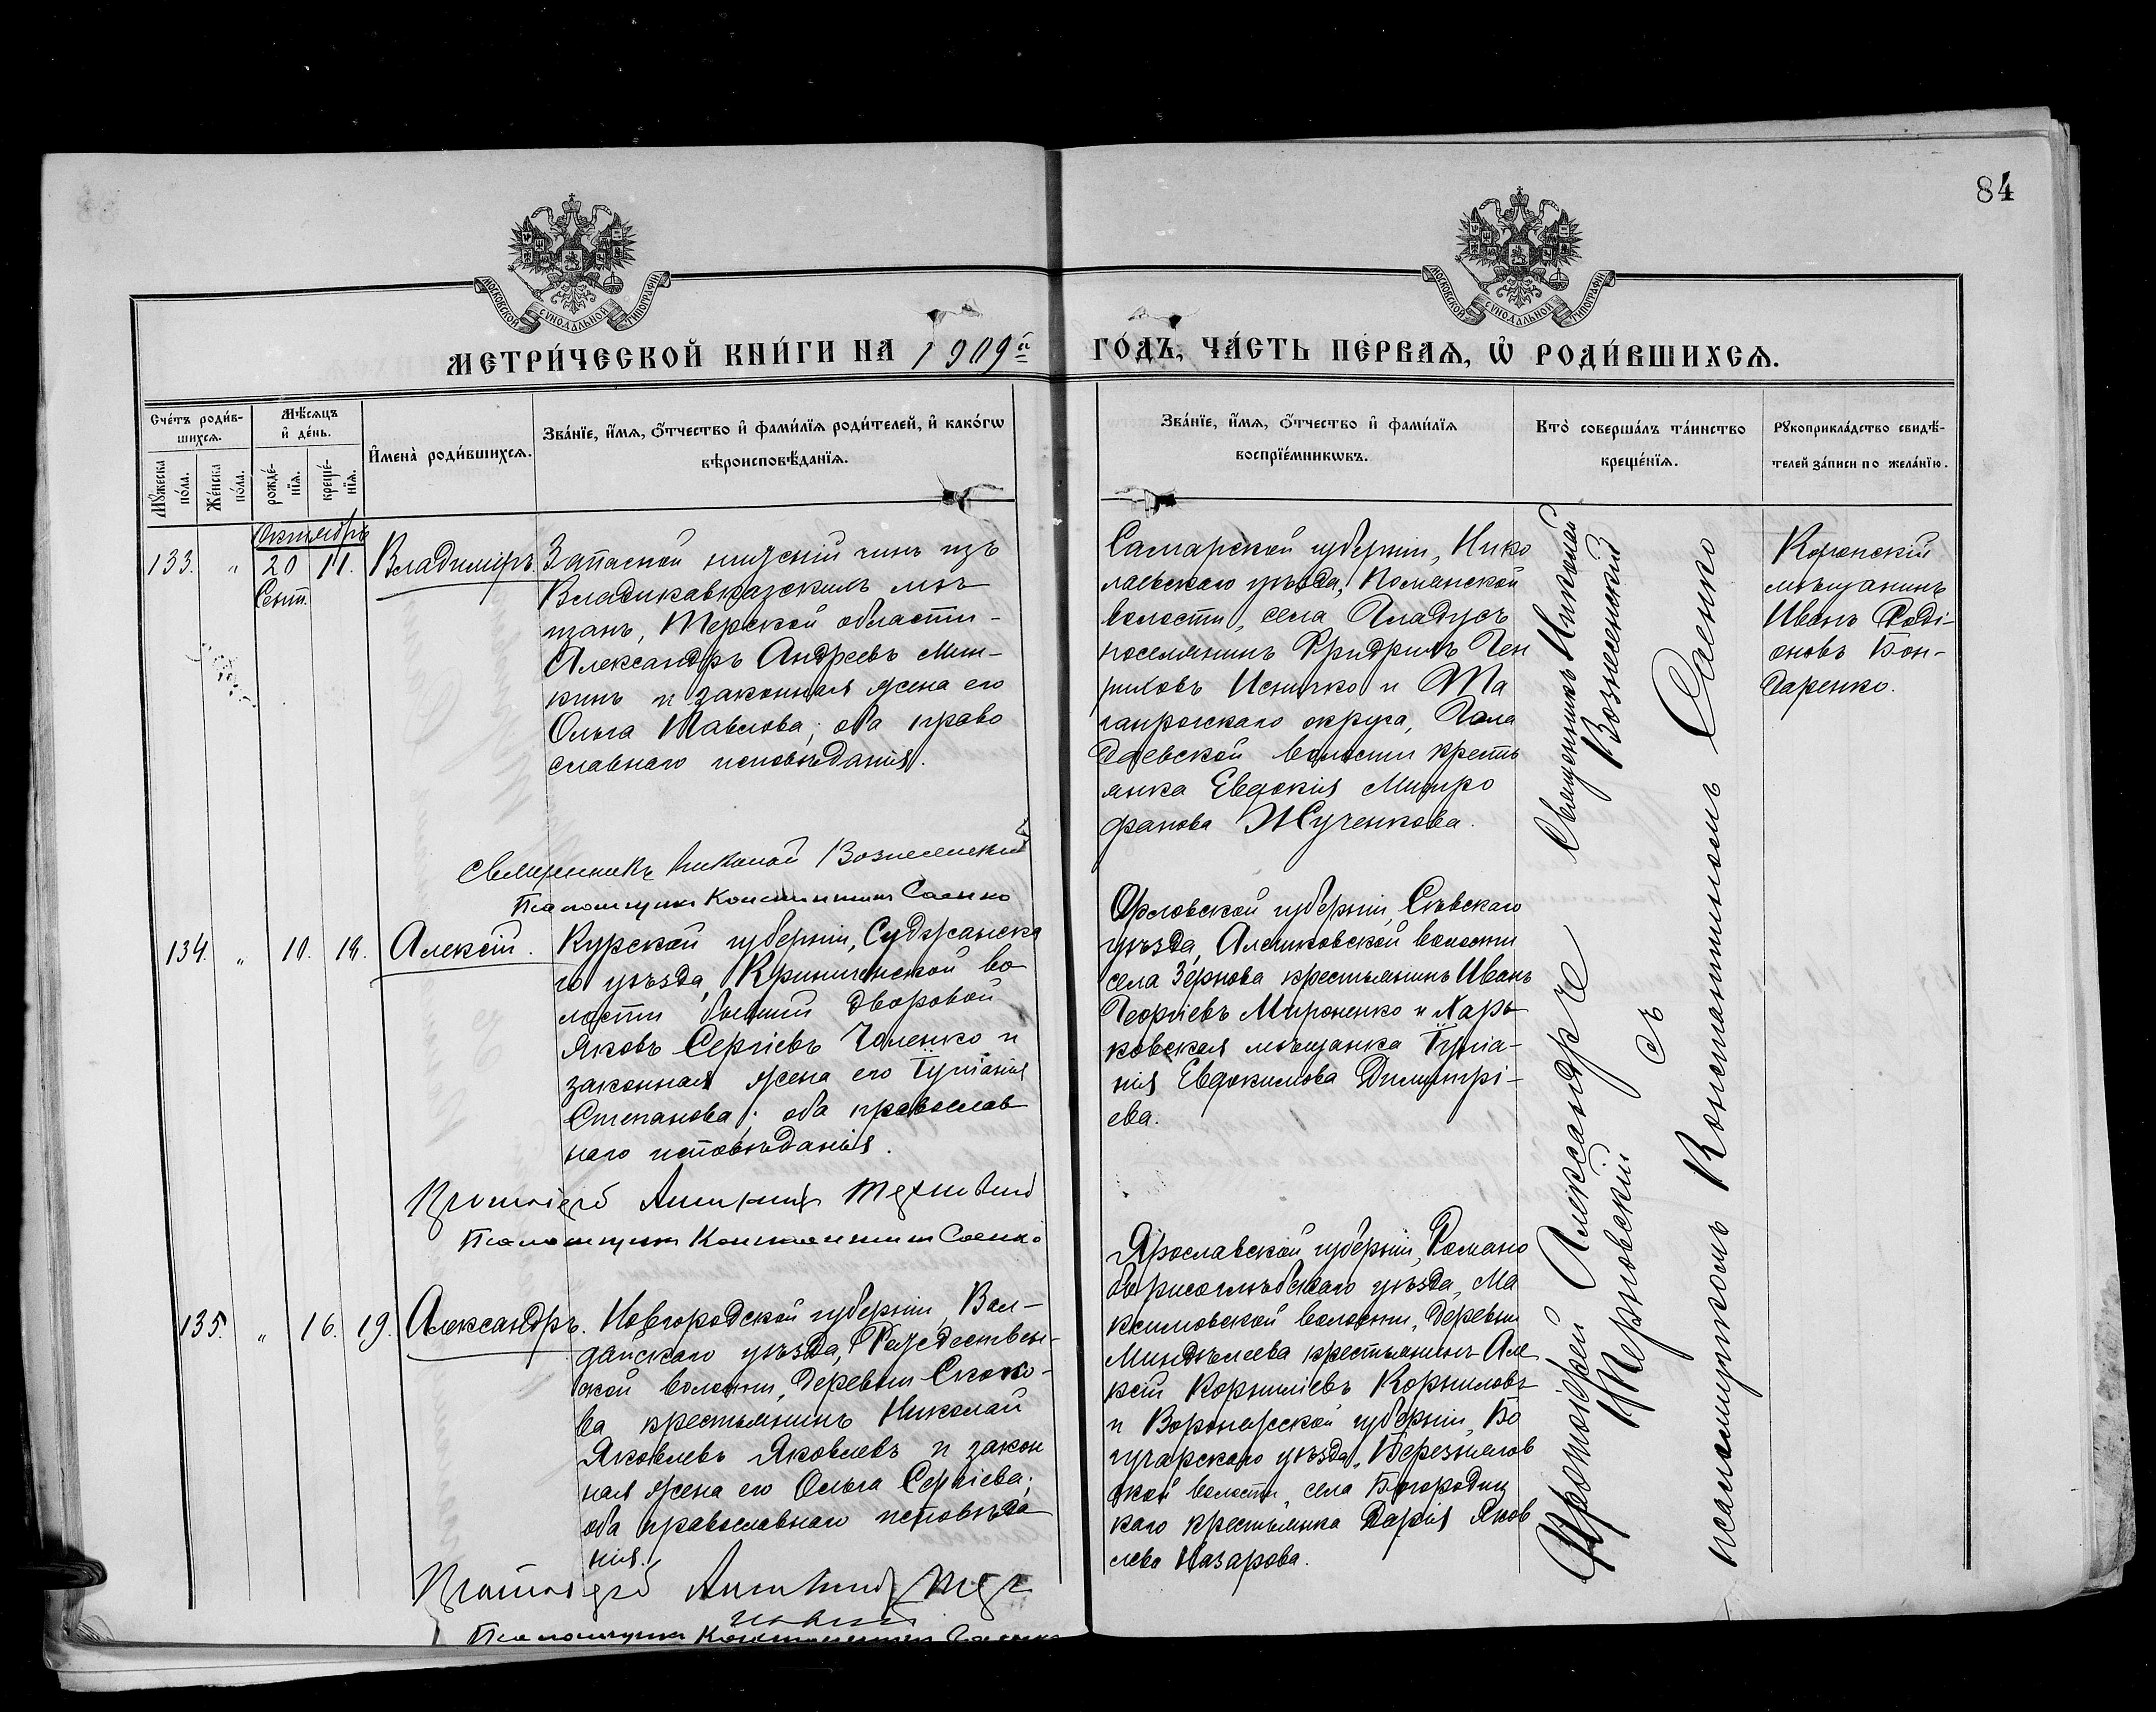 84
МОСКОВСКОЙ СѴНОДАЛЬНОЙ ТИПОГРАФІИ
МОСКОВСКОЙ СѴНОДАЛЬНОЙ ТИПОГРАФІИ
МЕТРИ́ЧЕСКОЙ КНИ́ГИ НА 1909й
ГО́ДЪ, ЧА́СТЬ ПЕ́РВАѦ, Ѡ҆ РОДИ́ВШИХСѦ.
Сче́тъ роди́в-
шихсѧ.
Мꙋ́жеска по́ла.
Же́нска по́ла.
Мѣ́сѧцъ
и҆ де́нь.
рожде́-
нїѧ.
креще́-
нїѧ.
И҆мена̀ роди́вшихсѧ.
Зва́нїе, и҆́мѧ, ѻ҆́тчество и҆ фами́лїѧ роди́телей, и҆ како́гѡ
вѣроисповѣ́данїѧ.
Зва́нїе, и҆́мѧ, ѻ҆́тчество и҆ фами́лїѧ
воспрїе́мникѡвъ.
Кто̀ соверша́лъ та́инство
креще́нїѧ.
Рꙋкоприкла́дство свидѣ́-
телей за́писи по жела́нїю.
Октябрь
133. " 20 11. Владиміръ.
Сент.
Запасной нижскій чинъ изъ
Владикавказскихъ мѣ
щанъ, Терской области-
Александръ Андреевъ Миш-
кинъ и законная жена его
Ольга Павлова; оба право
славнаго исповѣданія.
Священникъ Николай Вознесенскій
Псаломщикъ Константинъ Саенко
Самарской губерніи, Нико
лаевскаго уѣзда,
волости, села Гладусъ
поселянинъ Фридрихъ Ген
риховъ и Та
ганрогскаго округа, Гола
даевской волости кресть
янка Евдокія Митро
фанова Жученкова.
Священникъ Николай
Вознесенскій
мѣщанинъ
Иванъ Родi-
оновъ Бон-
даренко.
134. " 10. 18. Алексій.
Курской губерніи, Суджанска
го уѣзда, Криничанской во
лости бывшій дворовой
Яковъ Сергіевъ Чаленко и
законная жена его Іуліанія
Степанова; оба православ
наго исповѣданія.
Псаломщикъ Константинъ Саенко
Орловской губерніи, Сѣвскаго
уѣзда, Алешковской волости
села Зёрнова крестьянинъ Иванъ
Георгіевъ Мироненко и Харь
ковская мѣщанка Іуліа-
нія Евдокимова Димитрі-
ева.
135. " 16. 19. Александръ.
Новгородской губерніи, Вал-
дайскаго уѣзда, Рождествен-
ской волости, деревни Скоко-
ва крестьянинъ Николай
Яковлевъ Яковлевъ и закон
ная жена его Ольга Сергіева;
оба православнаго исповѣда
нія.
Псаломщикъ Константинъ Саенко
Ярославской губерніи, Романо
борисоглѣбскаго уѣзда, Ма
ксимовской волости, деревни
Миндѣлеева крестьянинъ Але
ксій Корниліевъ Корниловъ
и Воронежской губерніи, Бо
гучарскаго уѣзда, Березнягов
ской волости, села Богородиц
каго крестьянка Дарія Яков
лева Назарова.
Протоіерей Александръ
Терновскій съ
псаломщикомъ Константиномъ Саенко